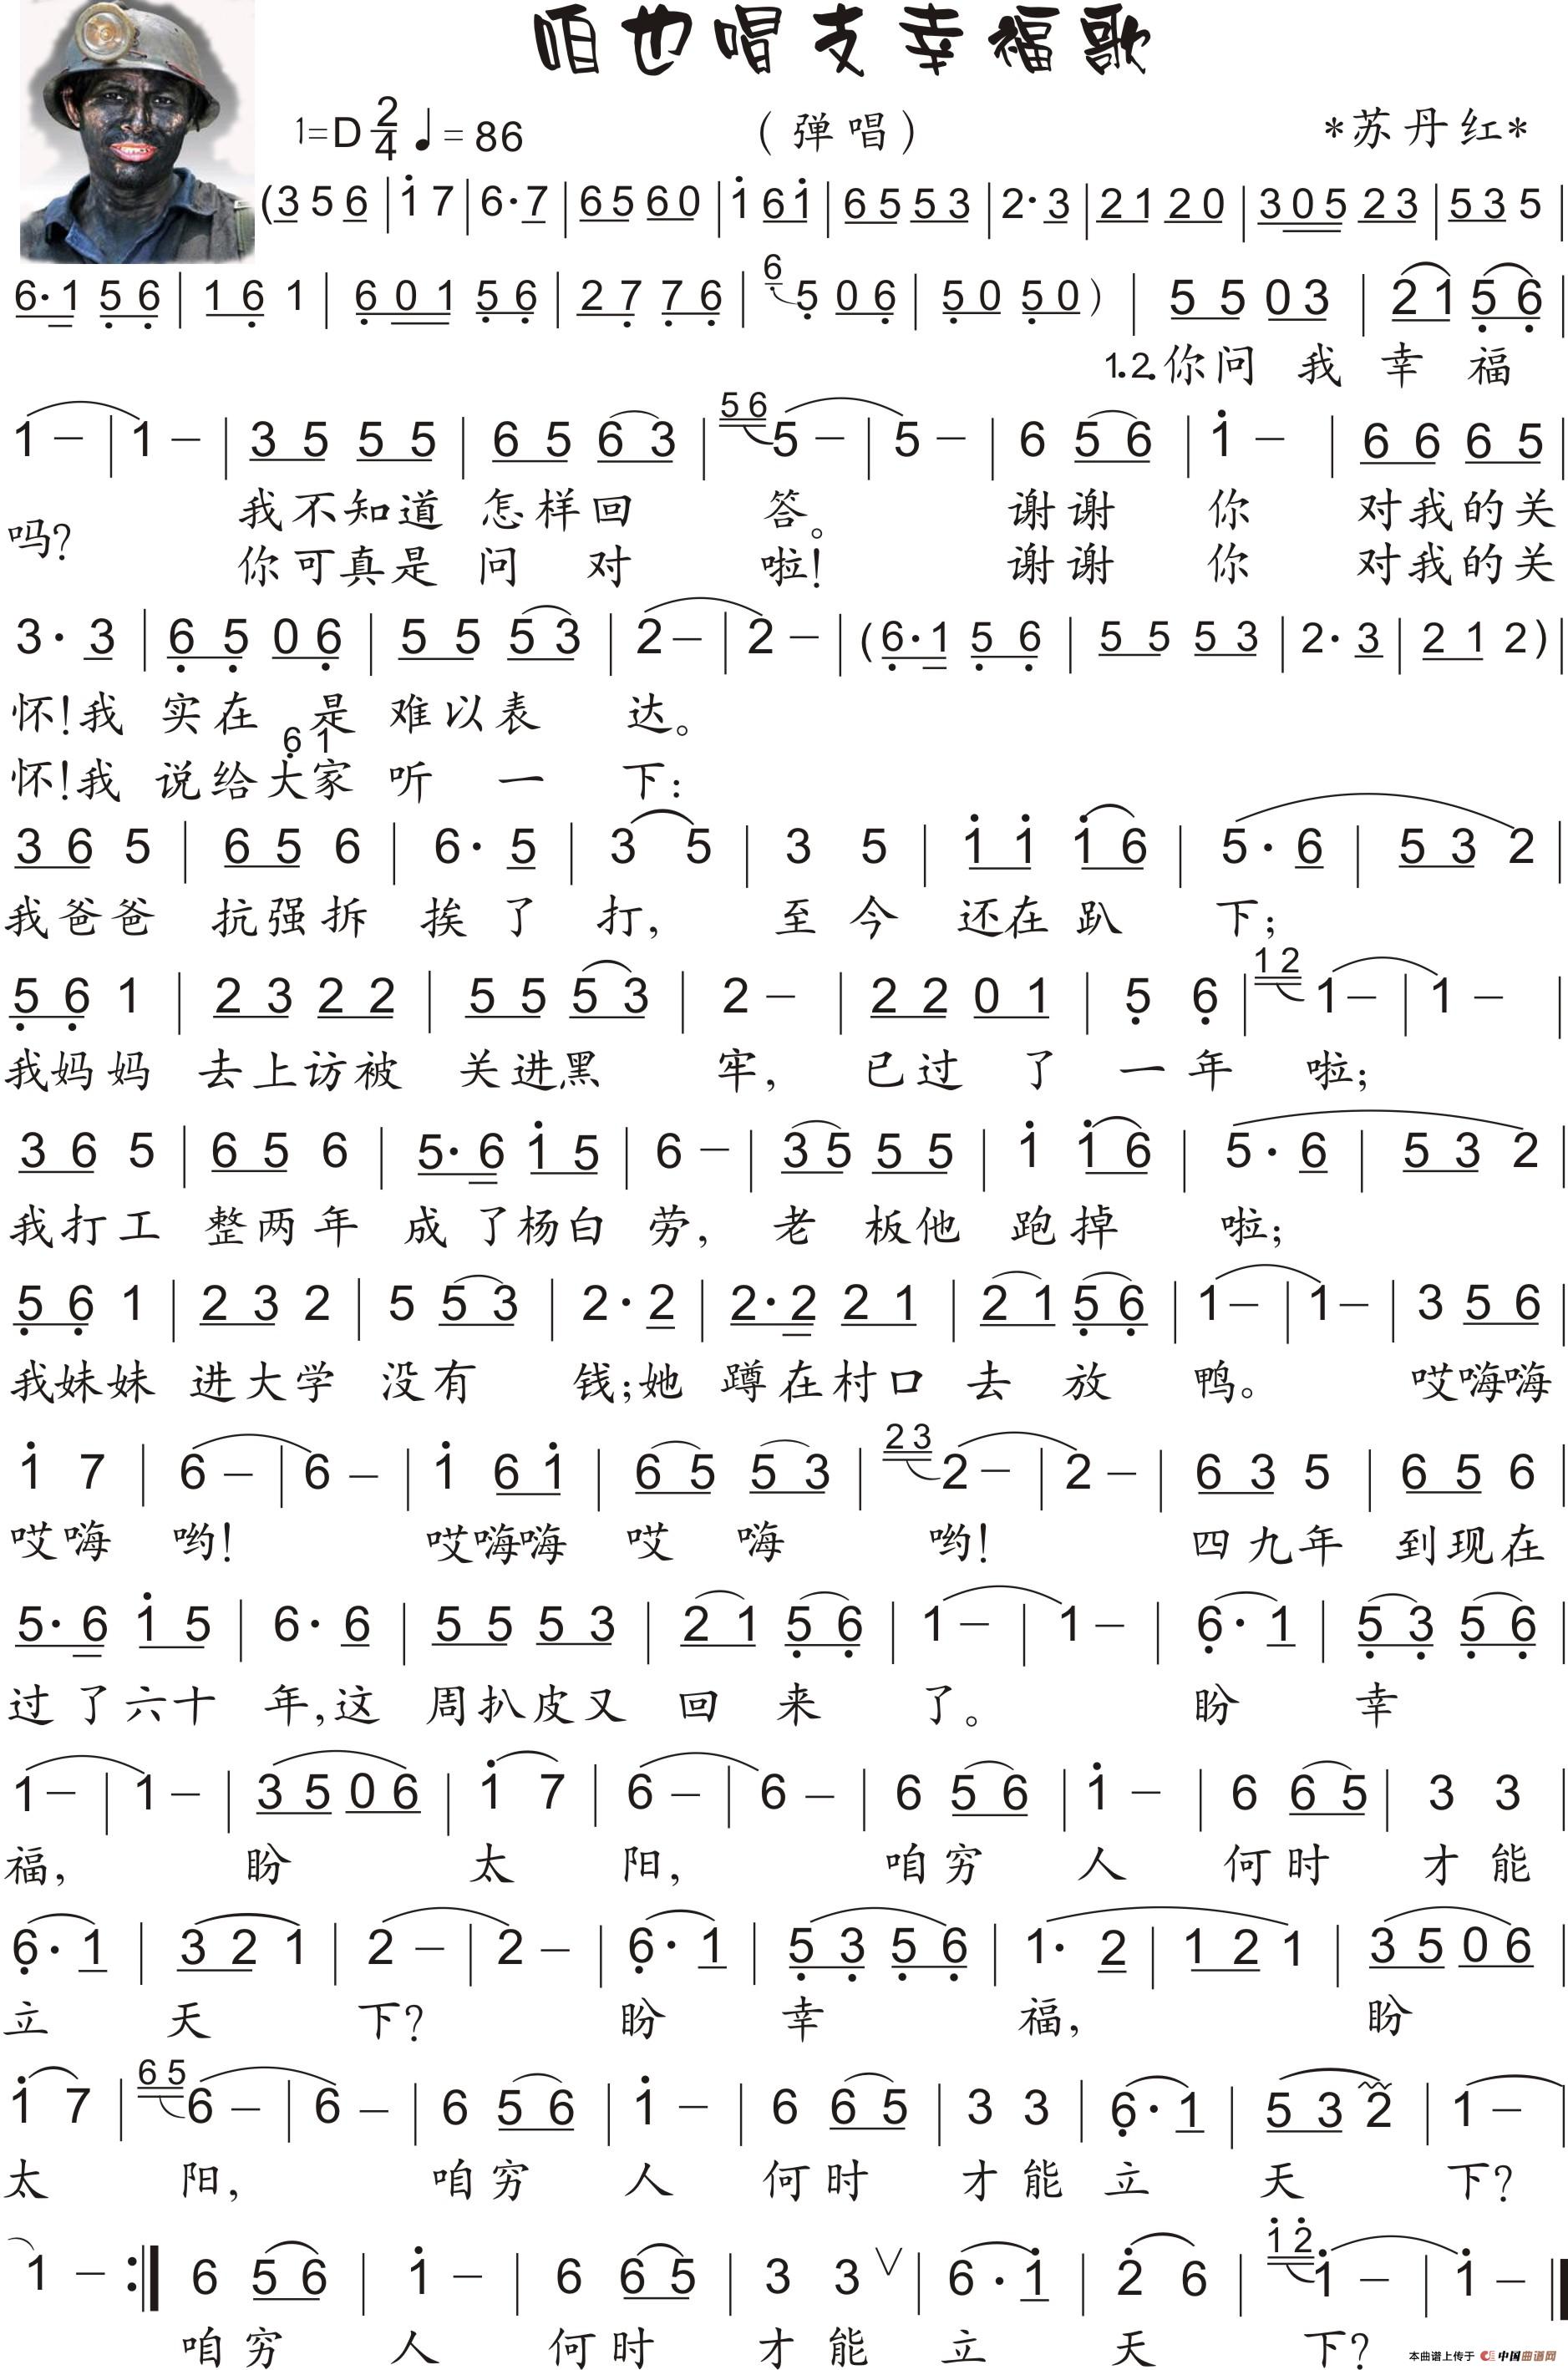 咱也唱支幸福歌
1=D 2/4 ♩= 86 （弹唱） *苏丹红*
(3 5 6 | i 7 | 6· 7 | 6 5 6 0 | i 6 i | 6 5 5 3 | 2· 3 | 2 1 2 0 | 3 0 5 2 3 | 5 3 5 |
6· 1 5 6 | 1 6 1 | 6 0 1 5 6 | 2 7 7 6 | 6 5 0 6 | 5 0 5 0 ) | 5 5 0 3 | 2 1 5 6 |
1.2.你问 我 幸 福
1 – | 1 – | 3 5 5 5 | 6 5 6 3 | 5 6 5 – | 5 – | 6 5 6 | i – | 6 6 6 5 |
吗? 我不知道 怎样回 答。 谢谢 你 对我的关
你可真是 问 对 啦! 谢谢 你 对我的关
3· 3 | 6 5 0 6 | 5 5 5 3 | 2 – | 2 – | (6· 1 5 6 | 5 5 5 3 | 2· 3 | 2 1 2 ) |
怀!我 实在 是 难以表 达。
6 1
怀!我 说给大家 听 一 下:
3 6 5 | 6 5 6 | 6· 5 | 3 5 | 3 5 | i i i 6 | 5· 6 | 5 3 2 |
我爸爸 抗强拆 挨了 打, 至今 还在趴 下;
5 6 1 | 2 3 2 2 | 5 5 5 3 | 2 – | 2 2 0 1 | 5 6 | 1 2 1 – | 1 – |
我妈妈 去上访被 关进黑 牢, 已过 了 一年 啦;
3 6 5 | 6 5 6 | 5· 6 i 5 | 6 – | 3 5 5 5 | i i 6 | 5· 6 | 5 3 2 |
我打工 整两年 成了杨白 劳, 老 板他 跑掉 啦;
5 6 1 | 2 3 2 | 5 5 3 | 2· 2 | 2· 2 2 1 | 2 1 5 6 | 1 – | 1 – | 3 5 6 |
我妹妹 进大学 没有 钱;她 蹲在村口 去 放 鸭。 哎嗨嗨
i 7 | 6 – | 6 – | i 6 i | 6 5 5 3 | 2 3 2 – | 2 – | 6 3 5 | 6 5 6 |
哎嗨 哟! 哎嗨嗨 哎 嗨 哟! 四九年 到现在
5· 6 i 5 | 6· 6 | 5 5 5 3 | 2 1 5 6 | 1 – | 1 – | 6· 1 | 5 3 5 6 |
过了六十 年,这 周扒皮又 回 来 了。 盼 幸
1 – | 1 – | 3 5 0 6 | i 7 | 6 – | 6 – | 6 5 6 | i – | 6 6 5 | 3 3 |
福, 盼 太 阳, 咱穷 人 何时 才能
6· 1 | 3 2 1 | 2 – | 2 – | 6· 1 | 5 3 5 6 | 1· 2 | 1 2 1 | 3 5 0 6 |
立 天 下? 盼 幸 福, 盼
i 7 | 6 5 6 – | 6 – | 6 5 6 | i – | 6 6 5 | 3 3 | 6· 1 | 5 3 2 | 1 – |
太 阳, 咱穷 人 何时 才能 立 天 下?
1 – :| 6 5 6 | i – | 6 6 5 | 3 3 ∨ | 6· i | 2 6 | i 2 i – | i – ‖
咱穷 人 何时 才能 立 天 下?
本曲谱上传于 中国曲谱网